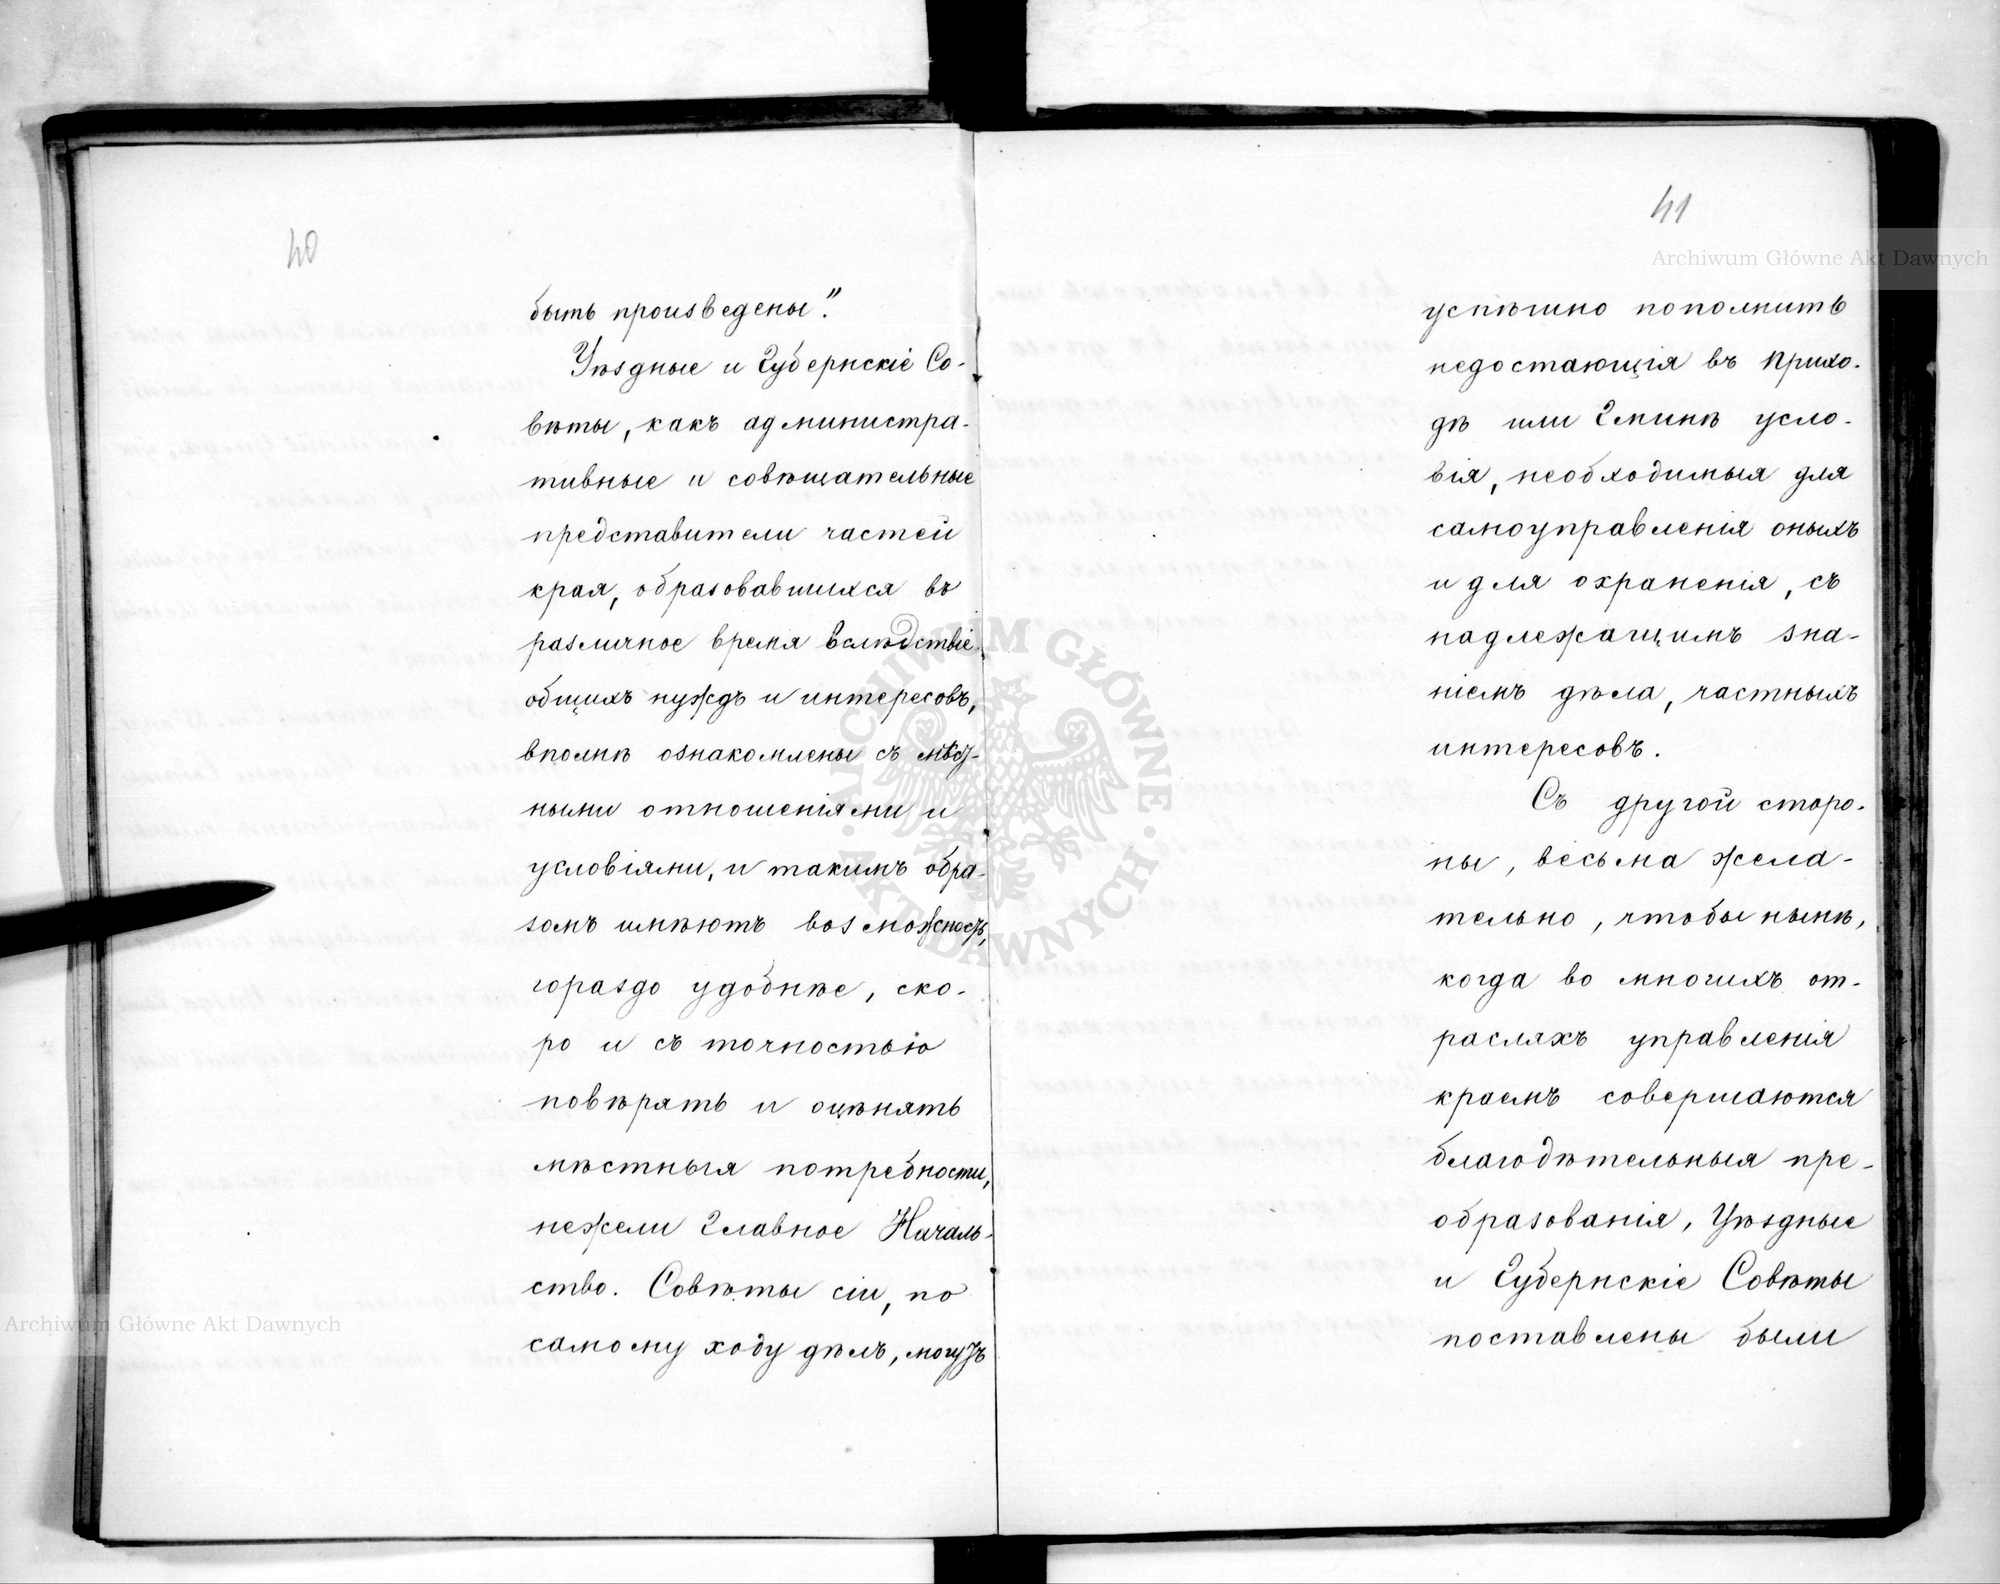 40
быть произведены".
Уѣздные и Губернскіе Со-
вѣты, какъ администра-
тивные и совѣщательные
представители частей
края, образовавшихся въ
различное время вслѣдствіе
общихъ нуждъ и интересовъ,
вполнѣ ознакомлены съ мѣст-
ными отношеніями и
условіями, и такимъ обра-
зомъ имѣютъ возможность,
гораздо удобнѣе, ско-
ро и съ точностью
повѣрять и оцѣнять
мѣстныя потребности,
нежели Главное Началь-
ство. Совѣты сіи, по
самому ходу дѣлъ, могутъ
41
успѣшно пополнить
недостающія въ Прихо-
дѣ или Гминѣ усло-
вія, необходимыя для
самоуправленія оныхъ
и для охраненія, съ
надлежащимъ зна-
ніемъ дѣла, частныхъ
интересовъ.
Съ другой сторо-
ны, весьма жела-
тельно, чтобы нынѣ,
когда во многихъ от-
расляхъ управленія
краемъ совершаются
благодѣтельныя пре-
образованія, Уѣздные
и Губернскіе Совѣты
поставлены были
Archiwum Główne Akt Dawnych
Archiwum Główne Akt Dawnych
ARCHIWUM GŁÓWNE
AKT DAWNYCH